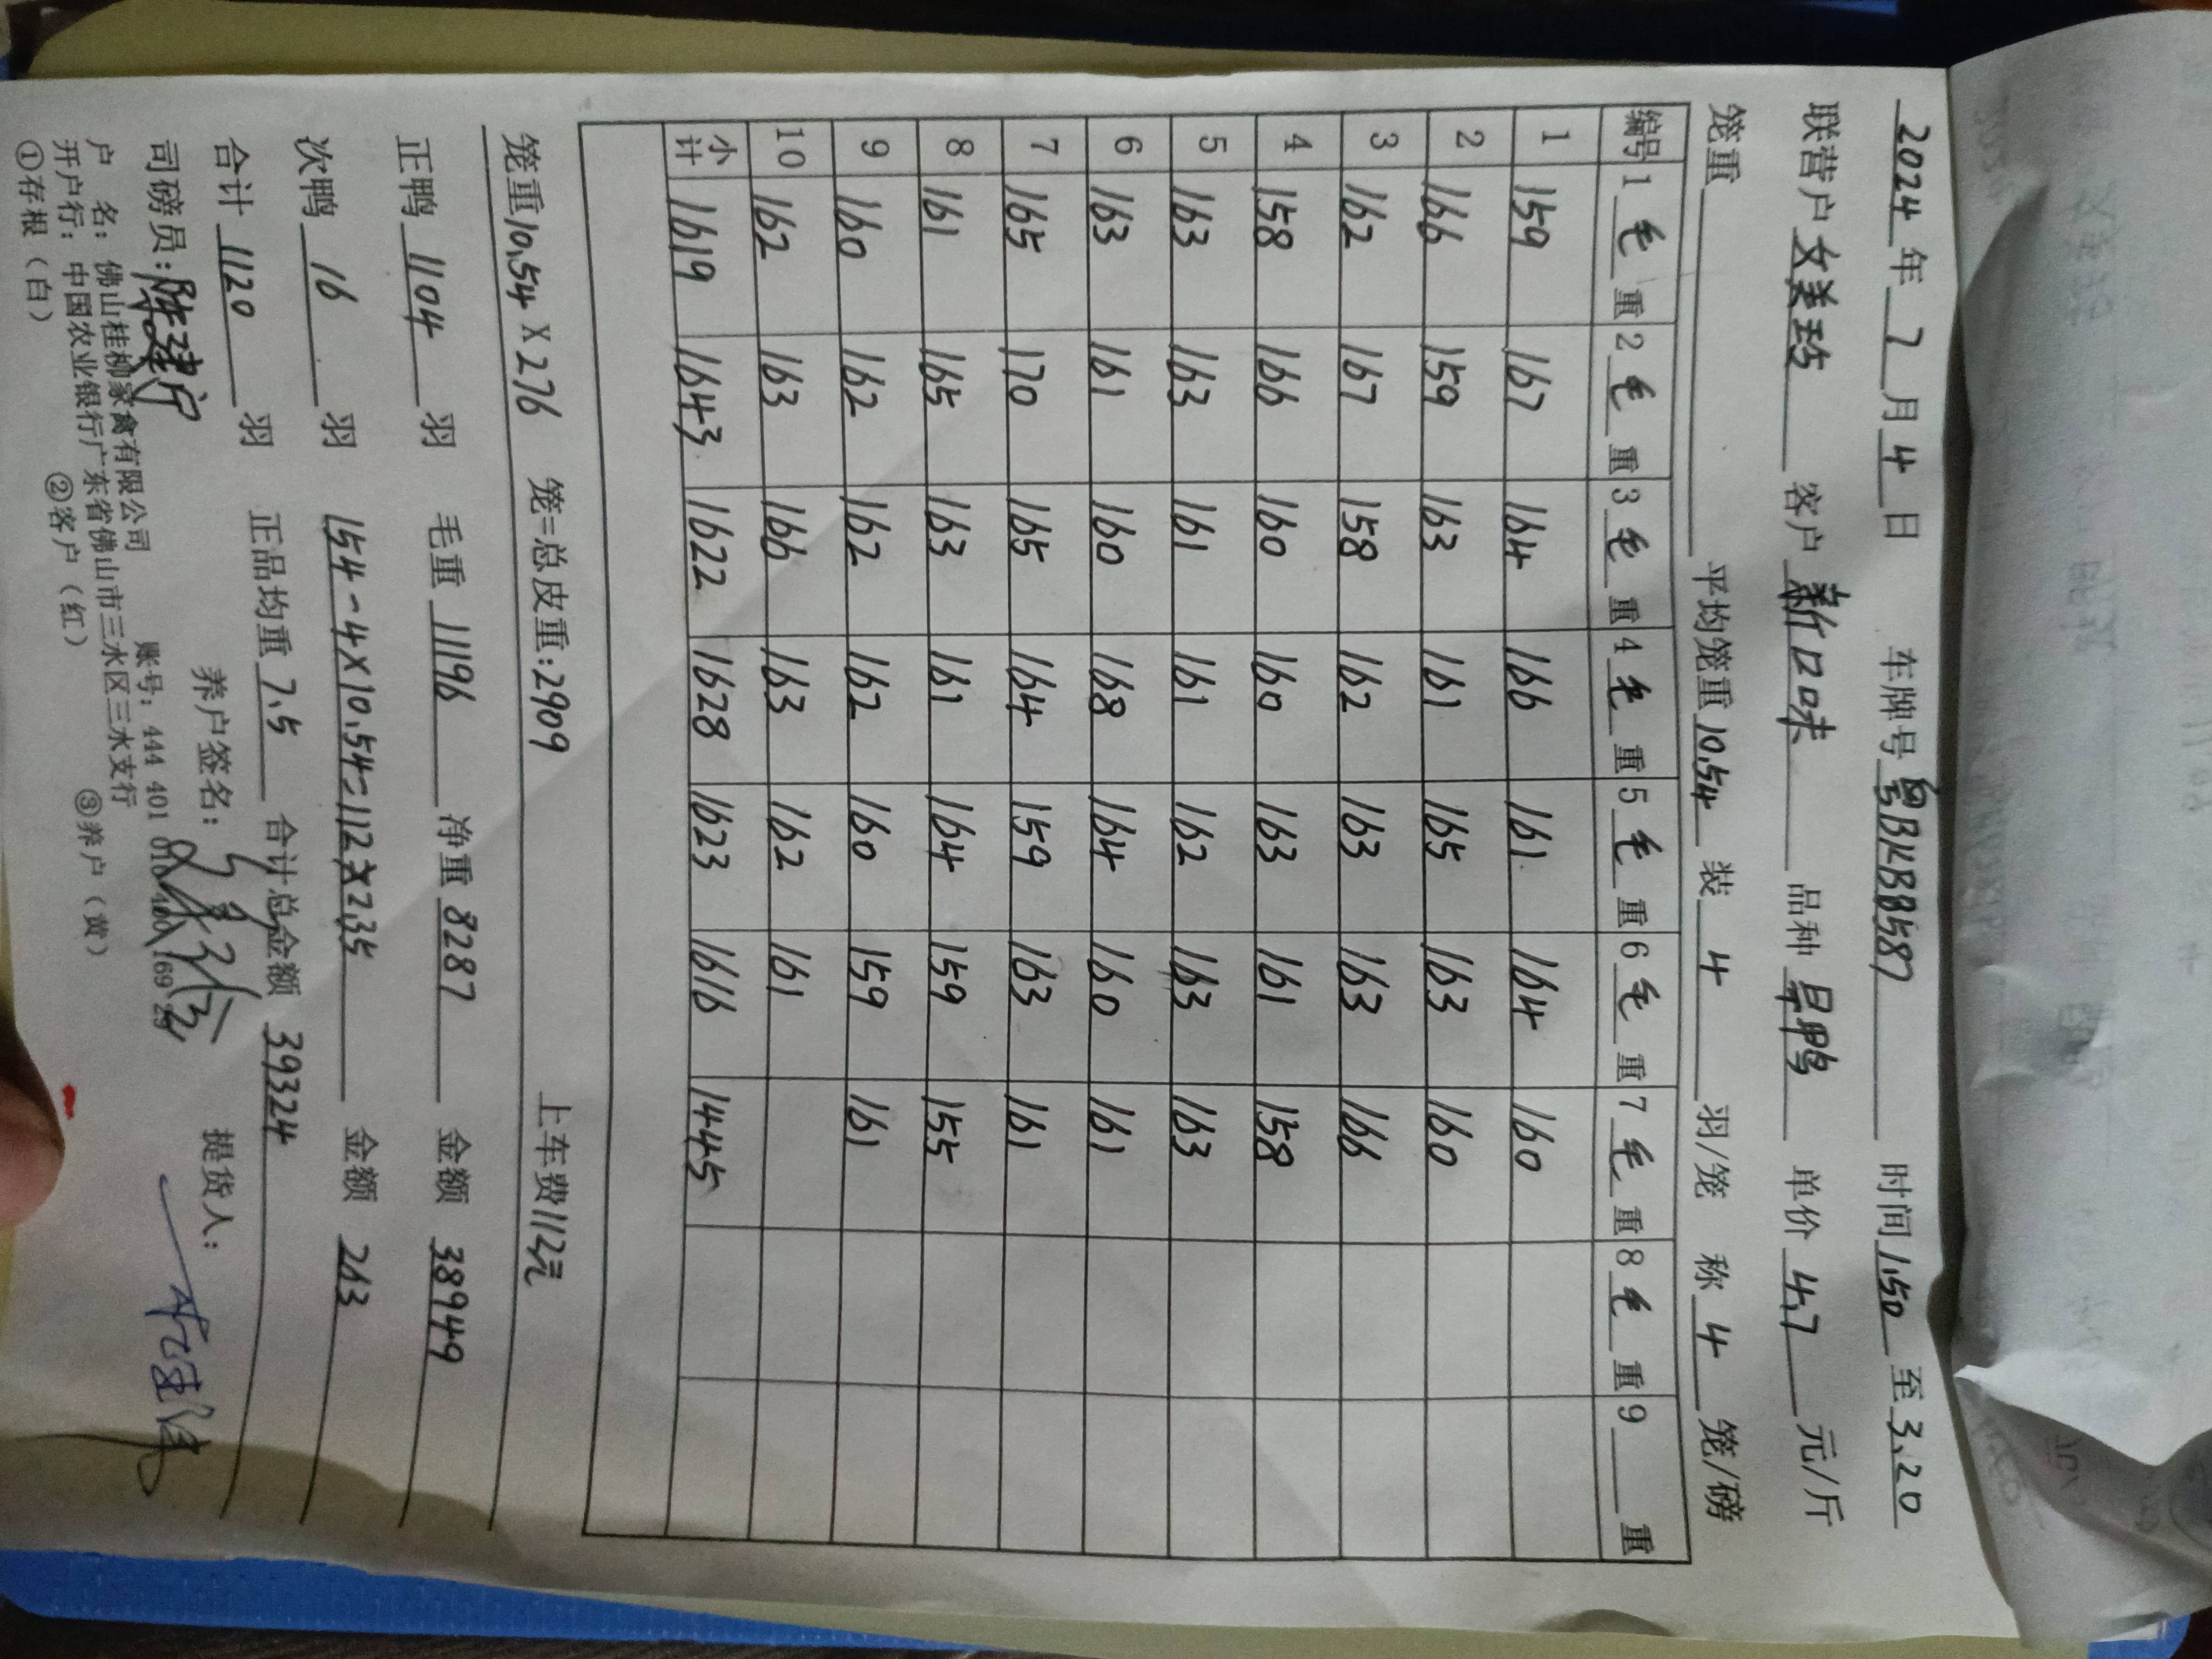 2024年7月4日 车牌号粤BKBB587 时间1.50至3.20
联营户文美珍 客户新口味 品种导鸭 单价4.7元/斤
笼重 平均笼重10.54装4羽/笼 称4笼/磅
编号 1毛重 2毛重 3毛重 4毛重 5毛重 6毛重 7毛重 8毛重 9 重
1 159 167 164 166 161 164 160
2 166 159 163 161 165 163 160
3 162 167 158 162 163 163 166
4 158 166 160 160 163 161 158
5 163 163 161 161 162 163 163
6 163 161 160 168 164 160 161
7 165 170 165 164 159 163 161
8 161 165 163 161 164 159 155
9 160 162 162 162 160 159 161
10 162 163 166 163 162 161
小计 1619 1643 1622 1628 1623 1616 1445
笼重10.54X276 笼=总皮重:2909 上车费112元
正鸭1104羽 毛重11196 净重8287 金额38949
次鸭16羽 154-4X10.54=112X2.35 金额263
合计1120羽 正品均重7.5 合计总金额39324
司磅员: 养户签名: 提货人:
户 名:佛山桂柳家禽有限公司 账号:444 401 010 400 169 29
开户行:中国农业银行广东省佛山市三水区三水支行
①存根(白) ②客户(红) ③养户(黄)